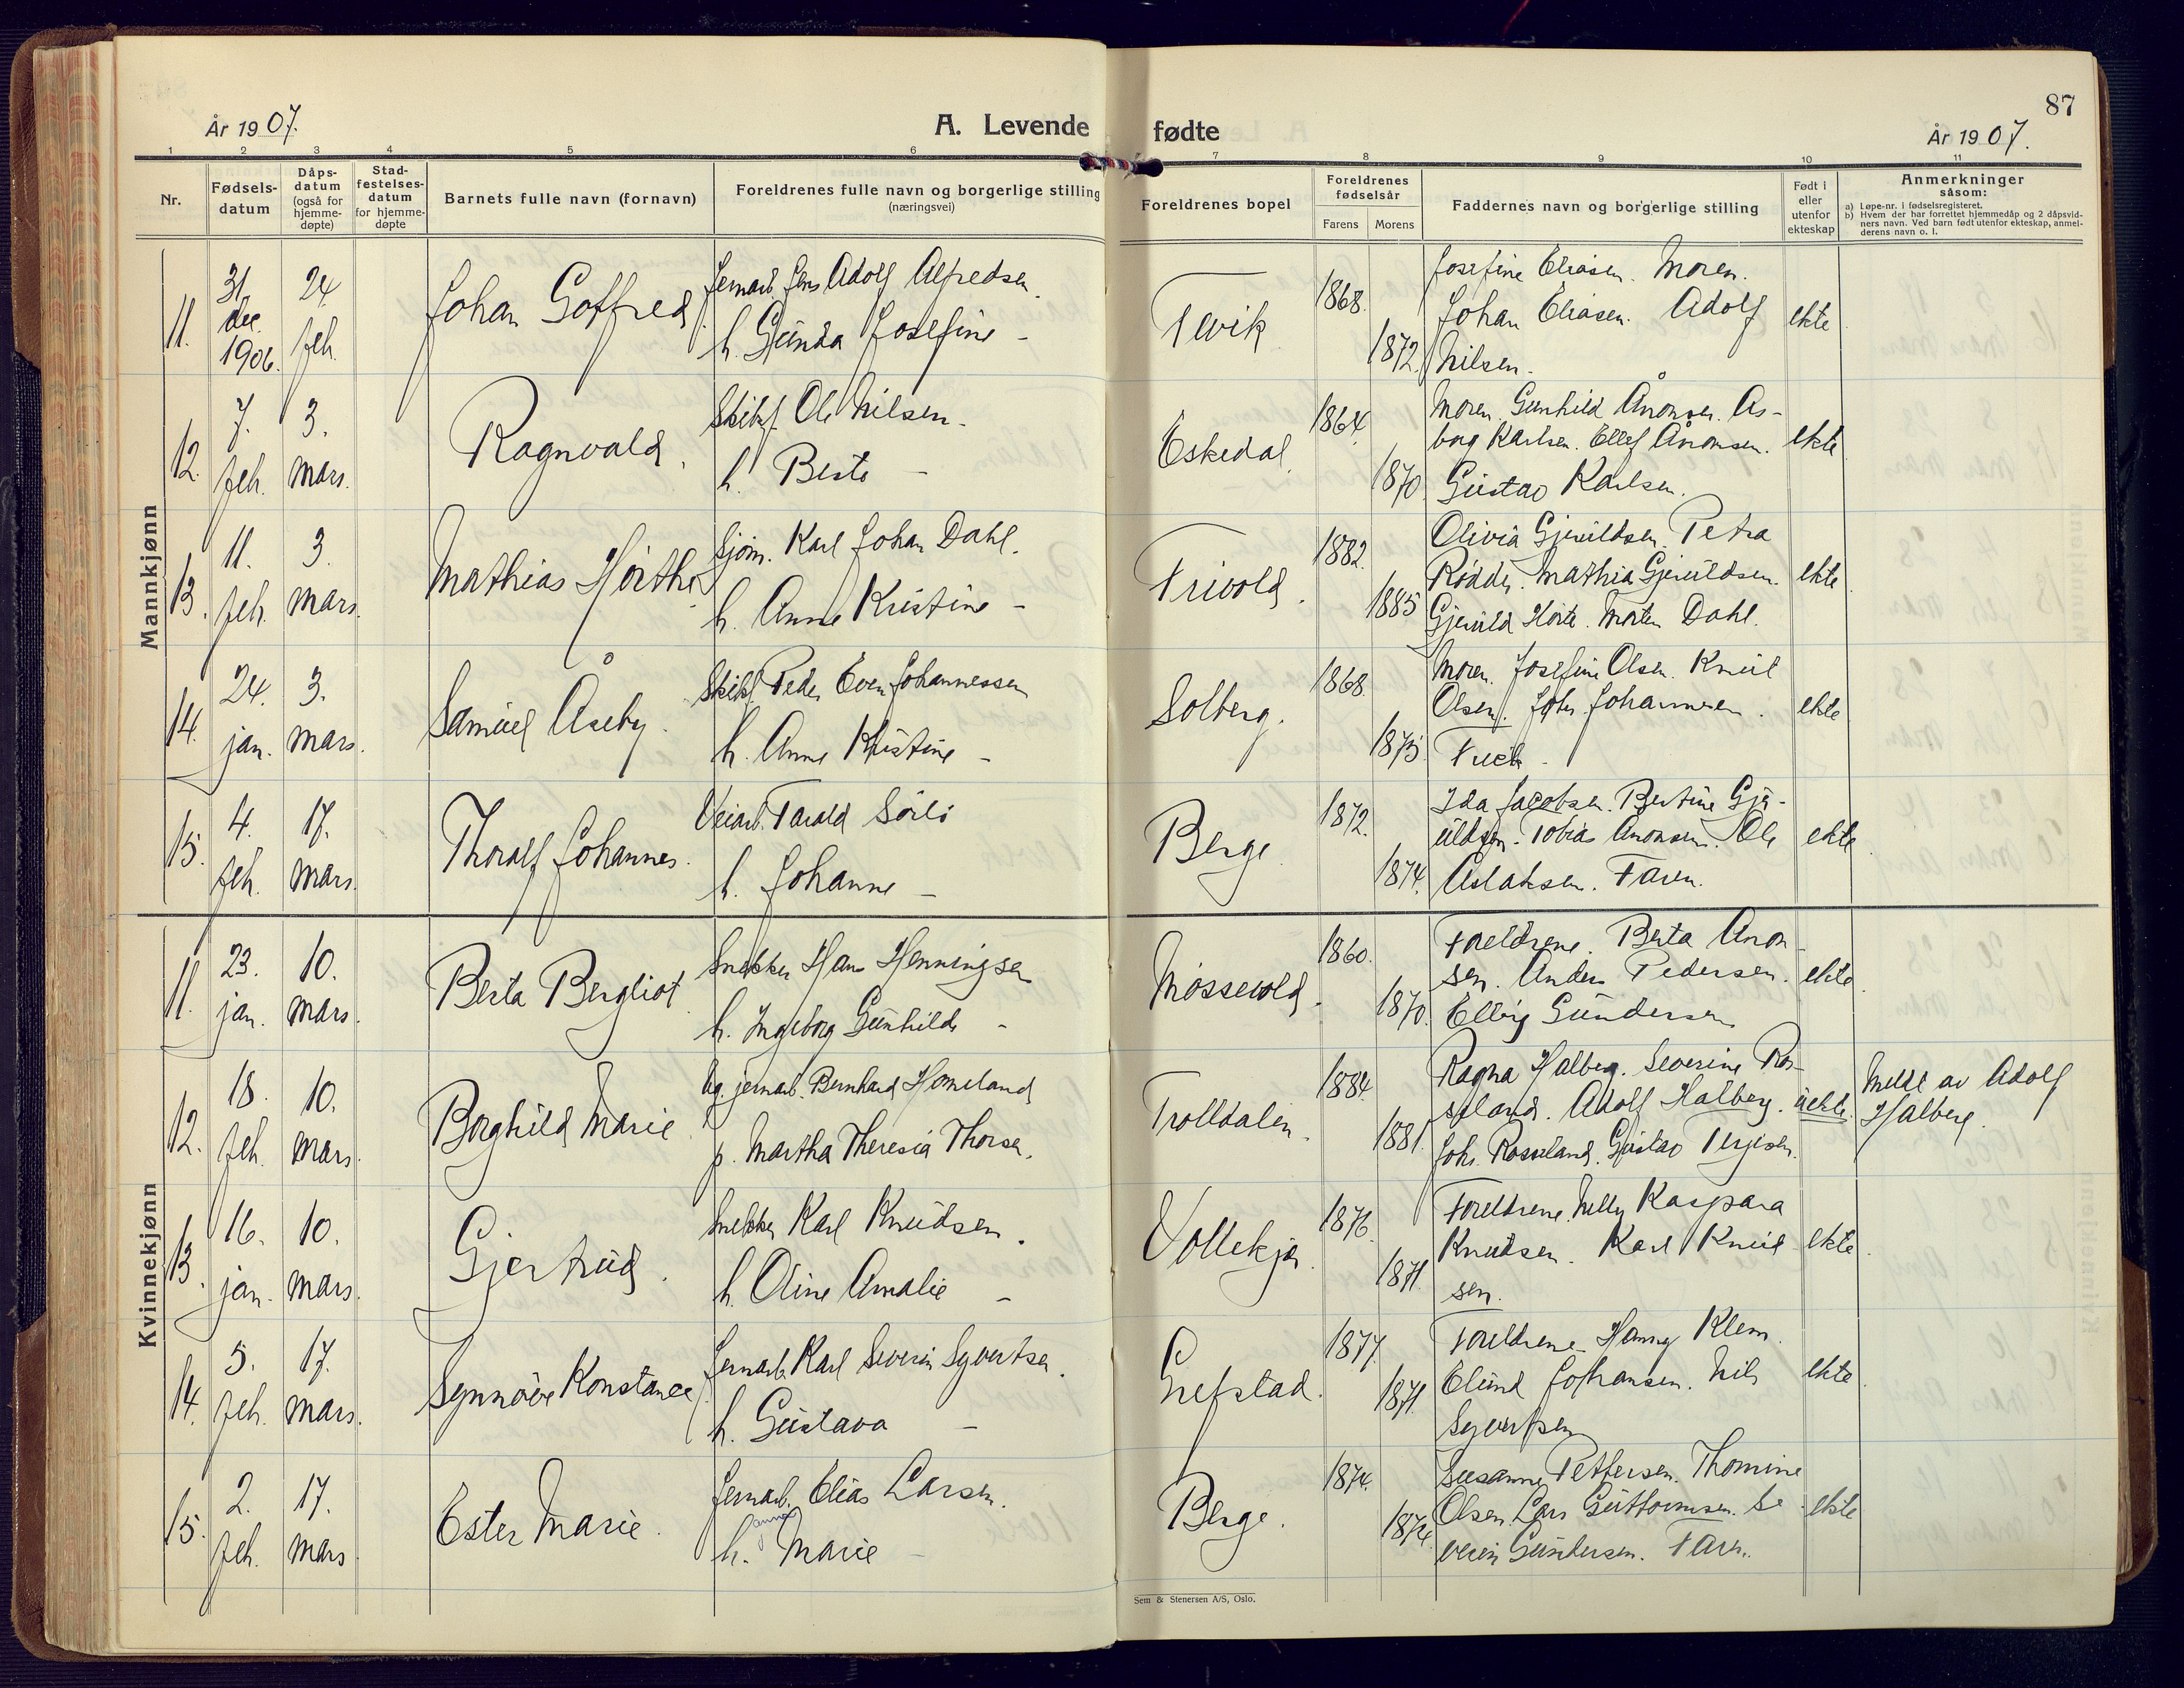 87
År 1907.
A. Levende fødte
År 1907.
1 2 3 4 5 6 7 8 9 10 11
Nr.
Fødsels-
datum
Dåps-
datum
(også for
hjemme-
døpte)
Stad-
festelses-
datum
for hjemme-
døpte
Barnets fulle navn (fornavn)
Foreldrenes fulle navn og borgerlige stilling
(næringsvei)
Foreldrenes bopel
Foreldrenes
fødselsår
Farens Morens
Faddernes navn og borgerlige stilling
Født i
eller
utenfor
ekteskap
Anmerkninger
såsom:
a) Løpe-nr. i fødselsregisteret.
b) Hvem der har forrettet hjemmedåp og 2 dåpsvid-
ners navn. Ved barn født utenfor ekteskap, anmel-
derens navn o. l.
Mannkjønn
11.
31.
dec.
1906.
24.
feb.
Johan Gotfred
Jernarb. Jens Adolf Alfredsen.
h. Gunda Josefine -
Tevik
1868.
1872.
Josefine Eliasen. Moren.
Johan Eliasen. Adolf
Nilsen.
ekte
12.
7.
feb.
3.
mars.
Ragnvald.
Skibsf. Ole Nilsen.
h. Berte -
Eskedal.
1864.
1870.
Moren. Gunhild Ånonsen. As-
borg Karlsen. Ellef Ånonsen.
Gustav Karlsen.
ekte
13.
11.
feb.
3.
mars.
Mathias Hörthe.
Sjöm. Karl Johan Dahl.
h. Anne Kristine -
Trivold.
1882.
1885
Olivia Gjeruldsen. Petra
Mathia Gjeruldsen.
Gjeruld Hörte. Morten Dahl.
ekte
14.
24.
jan.
3.
mars.
Samuel Åseby.
Skibsf. Peder Even Johannessen
h. Anne Kristine -
Solberg.
1868.
1873.
Moren. Josefine Olsen. Knut
Olsen. Johs. Johannesen.
ekte
15.
4.
feb.
17.
mars.
Thoralf Johannes.
Veiarb. Tarald Sörli
h. Johanne -
Berge
1872.
1874.
Ida Jacobsen. Bertine Gje-
uldsen. Tobias Anonsen. Ole
Aslaksen. Faren.
ekte.
Kvinnekjønn
11.
23.
jan.
10.
mars.
Berta Bergliot.
Snekker Hans Henningsen
h. Ingeborg Gunhilde -
Mossevold.
1860.
1870.
Foreldrene. Berta Anon-
sen. Anders Pedersen.
Ellbig Gundersen
ekte.
12.
18.
feb.
10.
mars.
Borghild Marie
Ug. jernarb. Bernhard Homeland
p. Martha Theresia Thorsen.
Trolldalen.
1884.
1881.
Ragna Halberg. Severine Ros-
seland. Adolf Halberg.
Johs. Rosseland. Gustav Terjesen.
uekte.
Meldt av Adolf
Halberg.
13.
16.
jan.
10.
mars.
Gjertrud.
Snekker Karl Knudsen.
h. Oline Amalie -
Vollekjær
1876.
1871.
Foreldrene. Nelly Kaspara
Knutsen. Karl Knud-
sen.
ekte.
14.
5.
feb.
17.
mars.
Synnöve Konstance.
Jernarb. Karl Severin Syvertsen.
h. Gustava -
Lefstad.
1877.
1871.
Foreldrene. Hanny Klem.
Elind Johansen. Nils
Syvertsen
ekte.
15.
2.
feb.
17.
mars
Ester Marie.
Jernarb. Elias Larsen.
anne
h. Marie -
Berge.
1874.
1874.
Susanne Pettersen. Thomine
Olsen. Lars Guttormsen. Se-
verin Gundersen. Faren.
ekte
Sem & Stenersen A/S, Oslo.